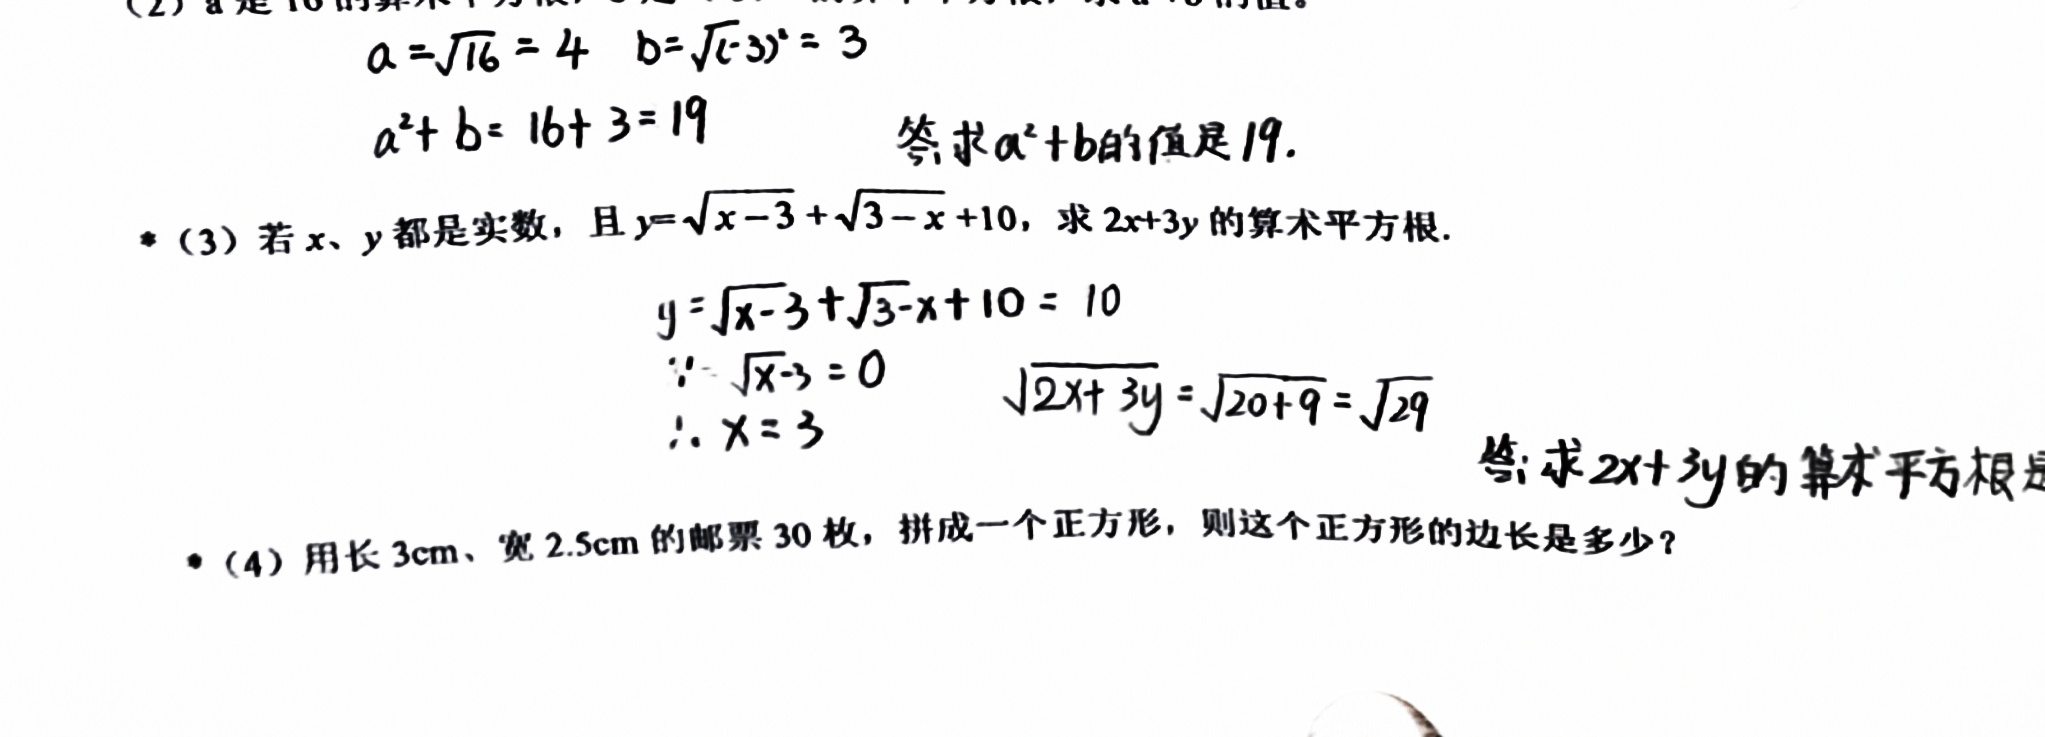 a=√16 = 4 b=√(-3)² = 3
a²+b= 16+3=19 答:求a²+b的值是19.
*（3）若 x、y 都是实数，且 y=√(x-3)+√(3-x)+10，求 2x+3y 的算术平方根.
y=√x-3+√3-x+10 = 10
∵ √x-3 = 0 √(2x+3y) = √(20+9) = √29
∴ x = 3
答:求2x+3y的算术平方根是
*（4）用长 3cm、宽 2.5cm 的邮票 30 枚，拼成一个正方形，则这个正方形的边长是多少？